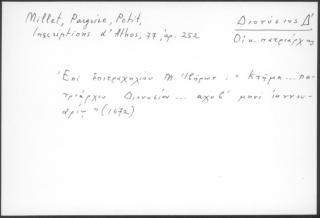 Millet, Pargoire, Petit,
Inscriptions d'Athos, 78, ἀρ. 252
Διονύσιος Δ'
Οἰκ. πατριάρχης
Ἐπὶ ἐπιτραχηλίου Μ. Ἰβήρων: "Κτῆμα... πα-
τριάρχου Διονυσίου... αχοβ' μηνὶ ἰαννου-
αρίῳ" (1672)